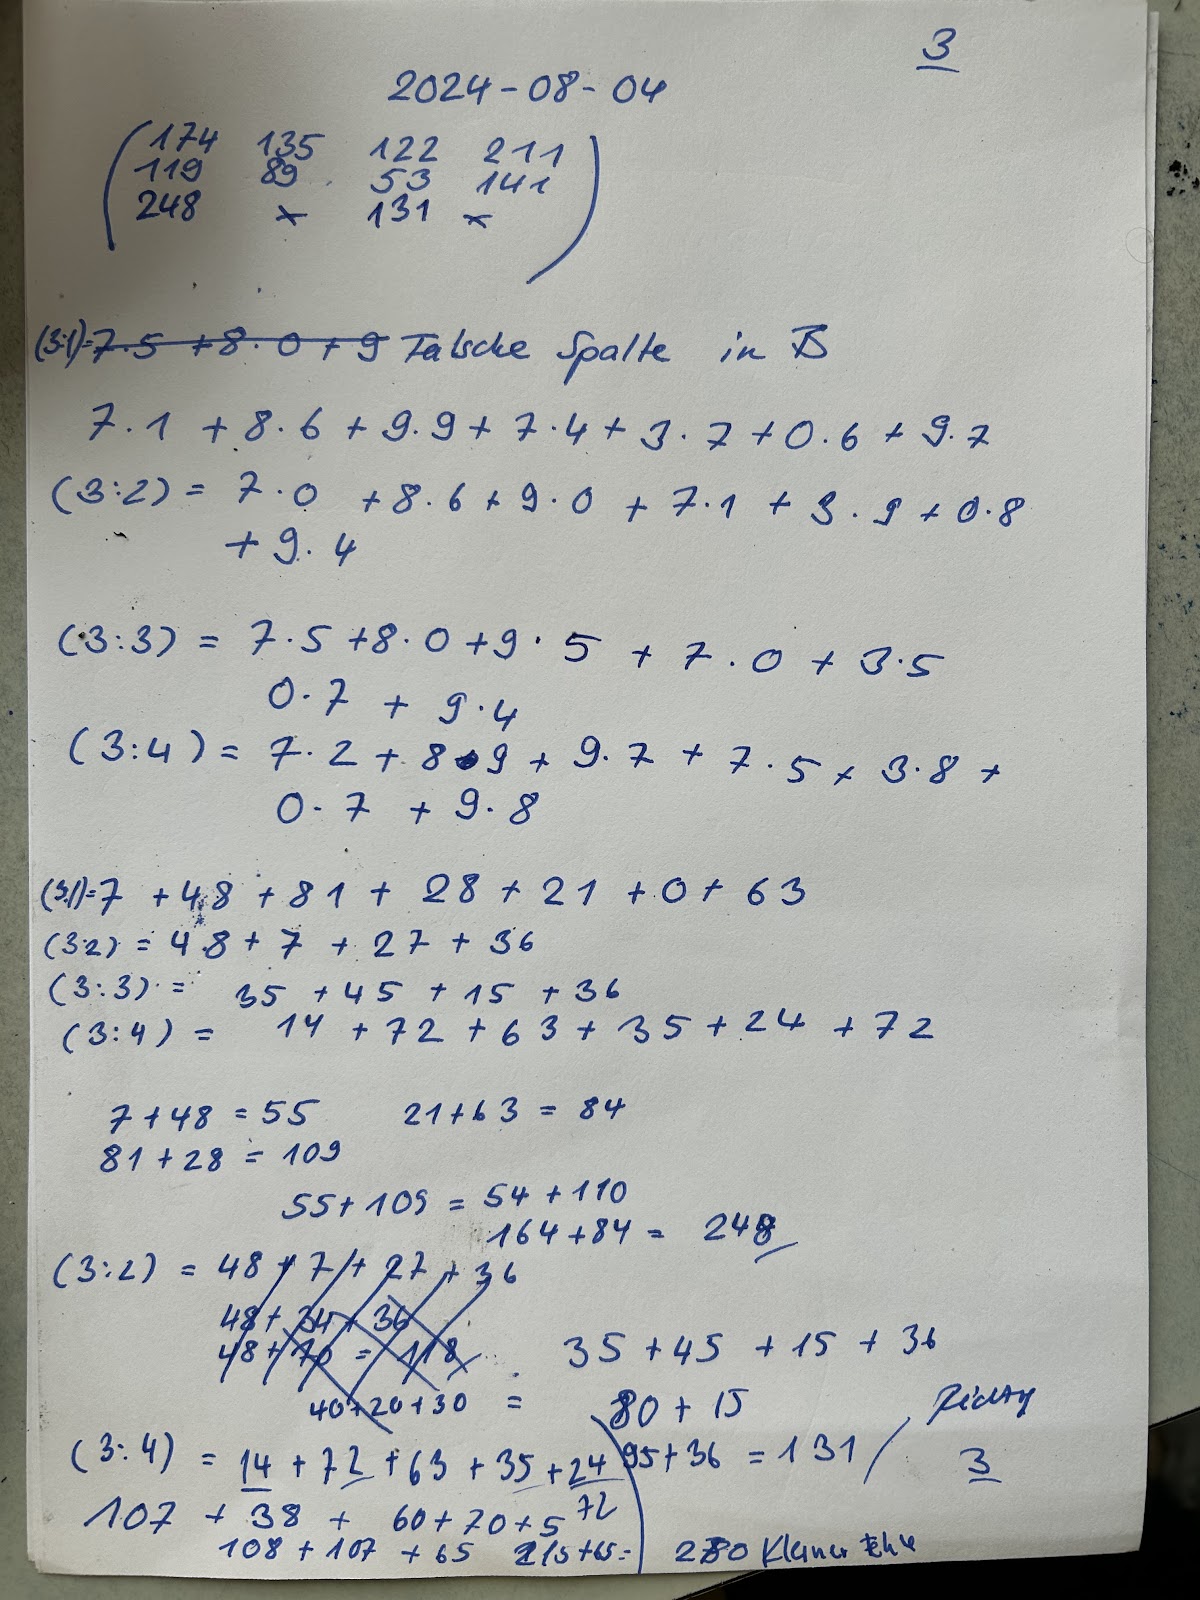 3
2024-08-04
174 135 122 211
119 89 53 141
248 x 131 x
(3:1)= 7·5 +8·0 + 9 Falsche Spalte in B
7·1 + 8·6 + 9·9 + 7·4 + 3·7 + 0·6 + 9·7
(3:2) = 7·0 + 8·6 + 9·0 + 7·1 + 3·9 + 0·8
+ 9·4
(3:3) = 7·5 + 8·0 + 9·5 + 7·0 + 3·5
0·7 + 9·4
(3:4) = 7·2 + 8·9 + 9·7 + 7·5 + 3·8 +
0·7 + 9·8
(3:1)= 7 + 48 + 81 + 28 + 21 + 0 + 63
(3:2) = 48 + 7 + 27 + 36
(3:3) = 35 + 45 + 15 + 36
(3:4) = 14 + 72 + 63 + 35 + 24 + 72
7 + 48 = 55 21 + 63 = 84
81 + 28 = 109
55 + 109 = 54 + 110
164 + 84 = 248
(3:2) = 48 + 7 + 27 + 36
48 + 34 + 36
48 + 70 = 118 35 + 45 + 15 + 36
40 + 20 + 30 = 80 + 15
95 + 36 = 131 3
(3:4) = 14 + 72 + 63 + 35 + 24
72
107 + 38 + 60 + 70 + 5
108 + 107 + 65 215 + 65 = 280 Kleiner